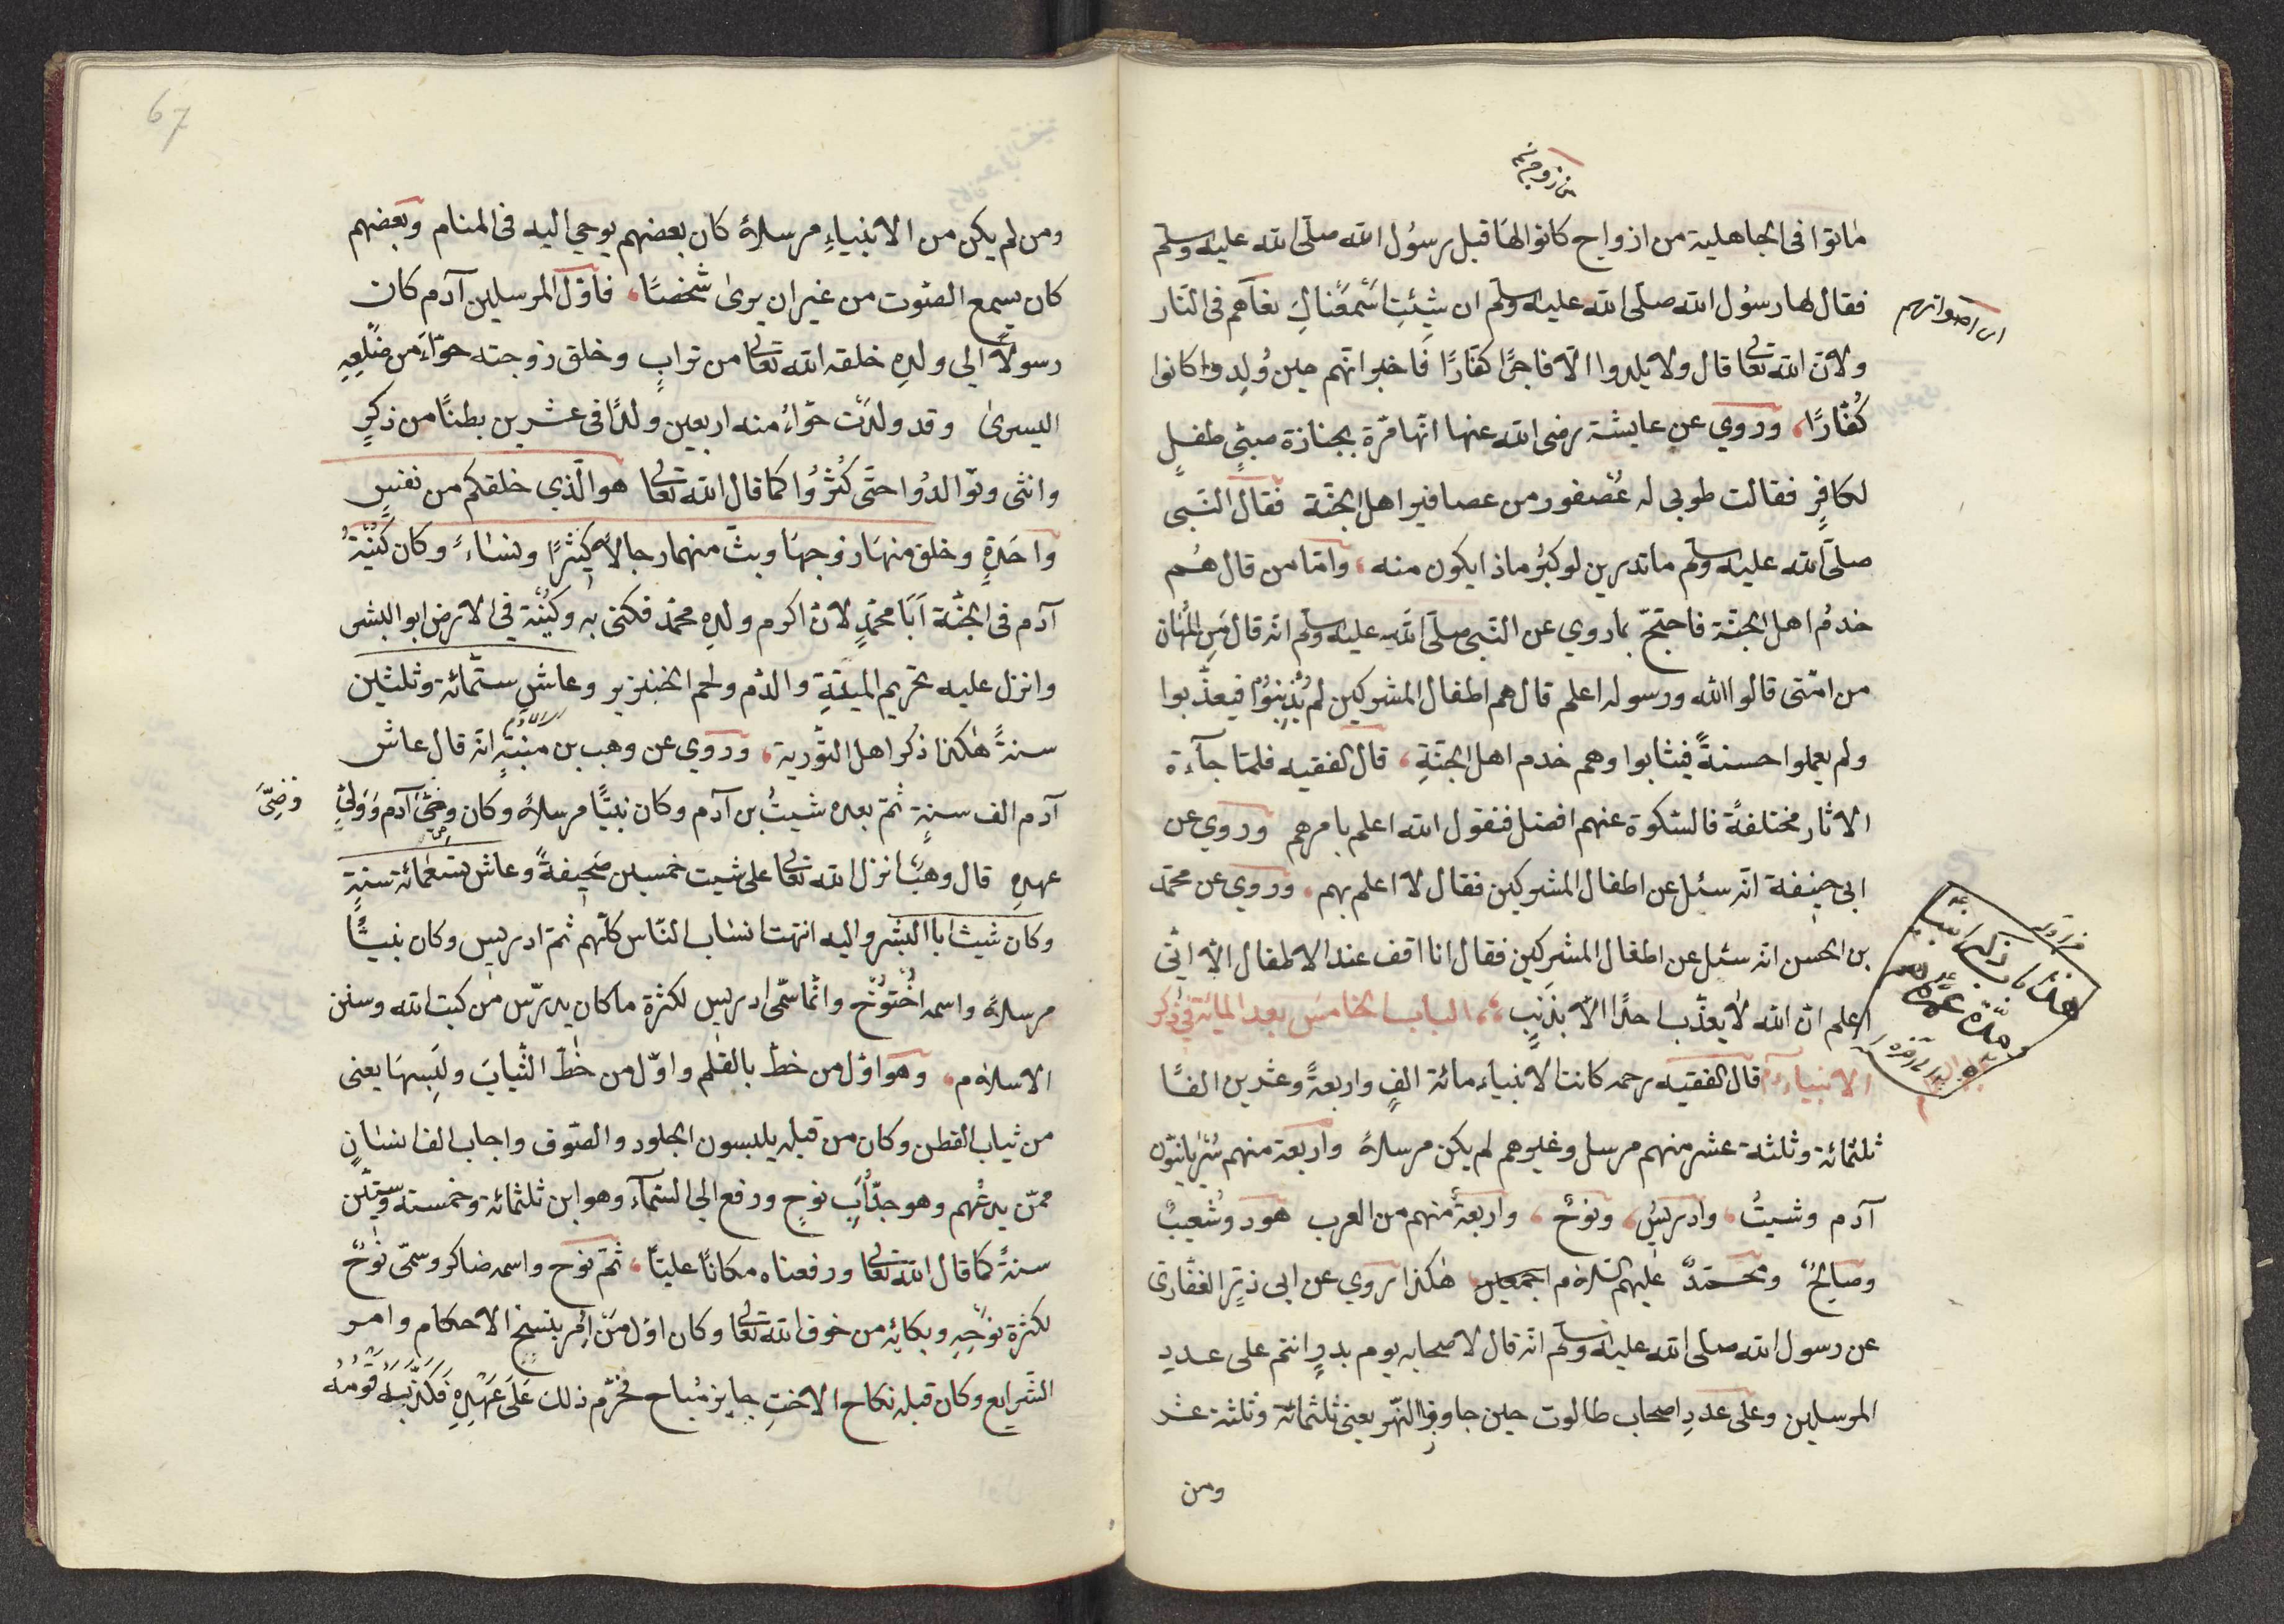 ماتوا فى الجاهلية من ازواج كانوا لها قبل رسول الله صلى الله عليه وسلم
فقال لها رسول الله صلى الله عليه وسلم ان شئت اسمعناك نغآهم فى النار
ولان الله تعالى قال ولا يلدوا الا فاجرا كفارا فاخبر انهم حين ولدوا كانوا
كفارا، وروي عن عايشة رضى الله عنها انها مرة بجنازة صبي طفل
لكافر فقالت طوبى له عصفور من عصافير اهل الجنة فقال النبى
صلى الله عليه وسلم ماتدرين لو كبر ماذا يكون منه، واما من قال هم
خدم اهل الجنة فاحتج بما روي عن النبى صلى الله عليه وسلم انه قال من اللهان
من امتى قالوا الله ورسوله اعلم قال هم اطفال المشركين لم يذنبوا فيعذبوا
ولم يعملوا حسنة فيثابوا وهم خدم اهل الجنة، قال الفقيه فلما جآءة
الاثار مختلفة فالسكوة عنهم افضل فنقول الله اعلم بامرهم وروي عن
ابى حنيفة انه سئل عن اطفال المشركين فقال لا اعلم بهم، وروي عن محمد
بن الحسن انه سئل عن اطفال المشركين فقال انا اقف عند الاطفال الا انى
اعلم ان الله لا يعذب احدا الا بذنب، الباب الخامس بعد المائة فى ذكر
الانبياء قال الفقيه رحمه كانت الانبياء مائة الف واربعة وعشرين الفا
ثلثمائة وثلثة عشر منهم مرسل وغيرهم لم يكن مرسلا واربعة منهم سريانيون
آدم وشيث، وادريس، ونوح، واربعة منهم من العرب هود وشعيب
وصالح ومحمد عليهم السلام اجمعين، هكذا روي عن ابى ذر الغفارى
عن رسول الله صلى الله عليه وسلم انه قال لاصحابه يوم بدر انتم على عدد
المرسلين وعلى عدد اصحاب طالوت حين جاوزوا النهر يعنى ثلثمائة وثلثة عشر
ومن
67
ومن لم يكن من الانبياء مرسلا كان بعضهم يوحي اليه فى المنام وبعضهم
كان يسمع الصوت من غير ان يرى شخصا، فاول المرسلين آدم كان
رسولا الي ولده خلقه الله تعالى من تراب وخلق زوجته حوآء من ضلعه
اليسرى وقد ولدت حوآء منه اربعين ولدا فى عشرين بطنا من ذكر
وانثى وتوالدوا حتى كثروا كما قال الله تعالى هو الذي خلقكم من نفس
واحدة وخلق منها زوجها وبث منهما رجالا كثيرا ونساء وكان كنية
آدم فى الجنة ابا محمد لان اكرم ولده محمد فكنى به وكنية فى الارض ابو البشر
وانزل عليه تحريم الميتة والدم ولحم الخنزير وعاش ستمائة وثلثين
سنة هكذا ذكر اهل التورية، وروي عن وهب بن منبه انه قال عاش
آدم الف سنة ثم بعده شيث بن آدم وكان نبيا مرسلا وكان وصى آدم وولى
عهده قال وهب انزل الله تعالى على شيث خمسين صحيفة وعاش تسعمائة سنة
وكان شيث ابا البشر واليه انتهت انساب الناس كلهم ثمة ادريس وكان نبيا
مرسلا واسمه اخنوخ وانما سمى ادريس لكثرة ما كان يدرس من كتب الله وسنن
الاسلام، وهو اول من خط بالقلم واول من خط الثياب ولبسها يعنى
من ثياب القطن وكان من قبله يلبسون الجلود والصوف واجاب الف انسان
ممن يدعهم وهو جد اب نوح ورفع الي السمآء وهو ابن ثلثمائة وخمسة وستين
سنة كما قال الله تعالى ورفعناه مكانا عليا، ثم نوح واسمه ضاكر وسمى نوح
لكثرة نوحه وبكائه من خوف الله تعالى وكان اول من امر بنسخ الاحكام وامر
الشرايع وكان قبله نكاح الاخت جايز مباح فحرم ذلك على عهده فكذبه قومه